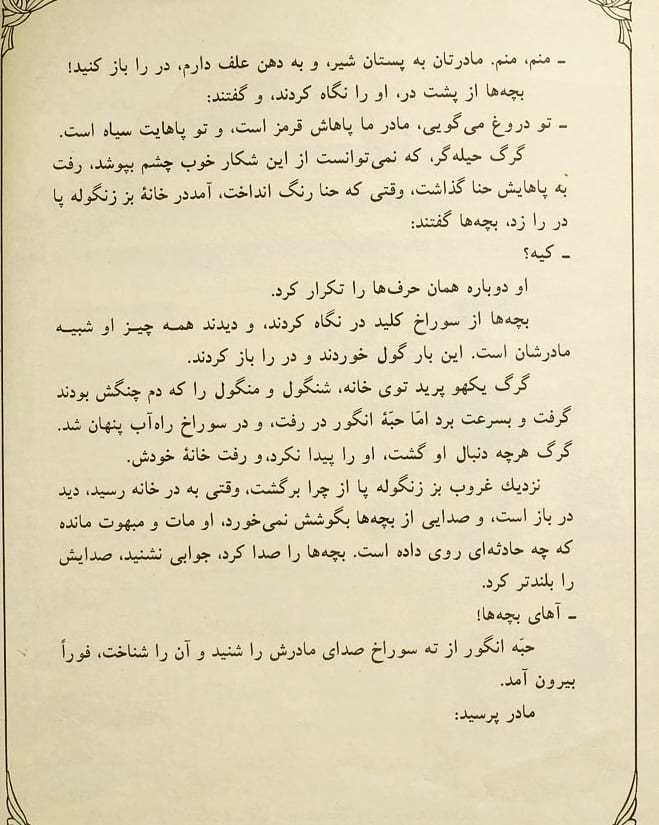 ـ منم، منم. مادرتان به پستان شیر، و به دهن علف دارم، در را باز کنید!
بچه‌ها از پشت در، او را نگاه کردند، و گفتند:
ـ تو دروغ می‌گویی، مادر ما پاهاش قرمز است، و تو پاهایت سیاه است.
گرگ حیله‌گر، که نمی‌توانست از این شکار خوب چشم بپوشد، رفت
به پاهایش حنا گذاشت، وقتی که حنا رنگ انداخت، آمددر خانهٔ بز زنگوله پا
در را زد، بچه‌ها گفتند:
ـ کیه؟
او دوباره همان حرف‌ها را تکرار کرد.
بچه‌ها از سوراخ کلید در نگاه کردند، و دیدند همـه چیـز او شبیـه
مادرشان است. این بار گول خوردند و در را باز کردند.
گرگ یکهو پرید توی خانه، شنگول و منگول را که دم چنگش بودند
گرفت و بسرعت برد امّا حبّهٔ انگور در رفت، و در سوراخ راه‌آب پنهان شد.
گرگ هرچه دنبال او گشت، او را پیدا نکرد،و رفت خانهٔ خودش.
نزدیك غروب بز زنگوله پا از چرا برگشت، وقتی به در خانه رسید، دید
در باز است، و صدایی از بچه‌ها بگوشش نمی‌خورد، او مات و مبهوت مانده
که چه حادثه‌ای روی داده است. بچه‌ها را صدا کرد، جوابی نشنید، صدایش
را بلندتر کرد.
ـ آهای بچه‌ها!
حبّه انگور از ته سوراخ صدای مادرش را شنید و آن را شناخت، فوراً
بیرون آمد.
مادر پرسید: